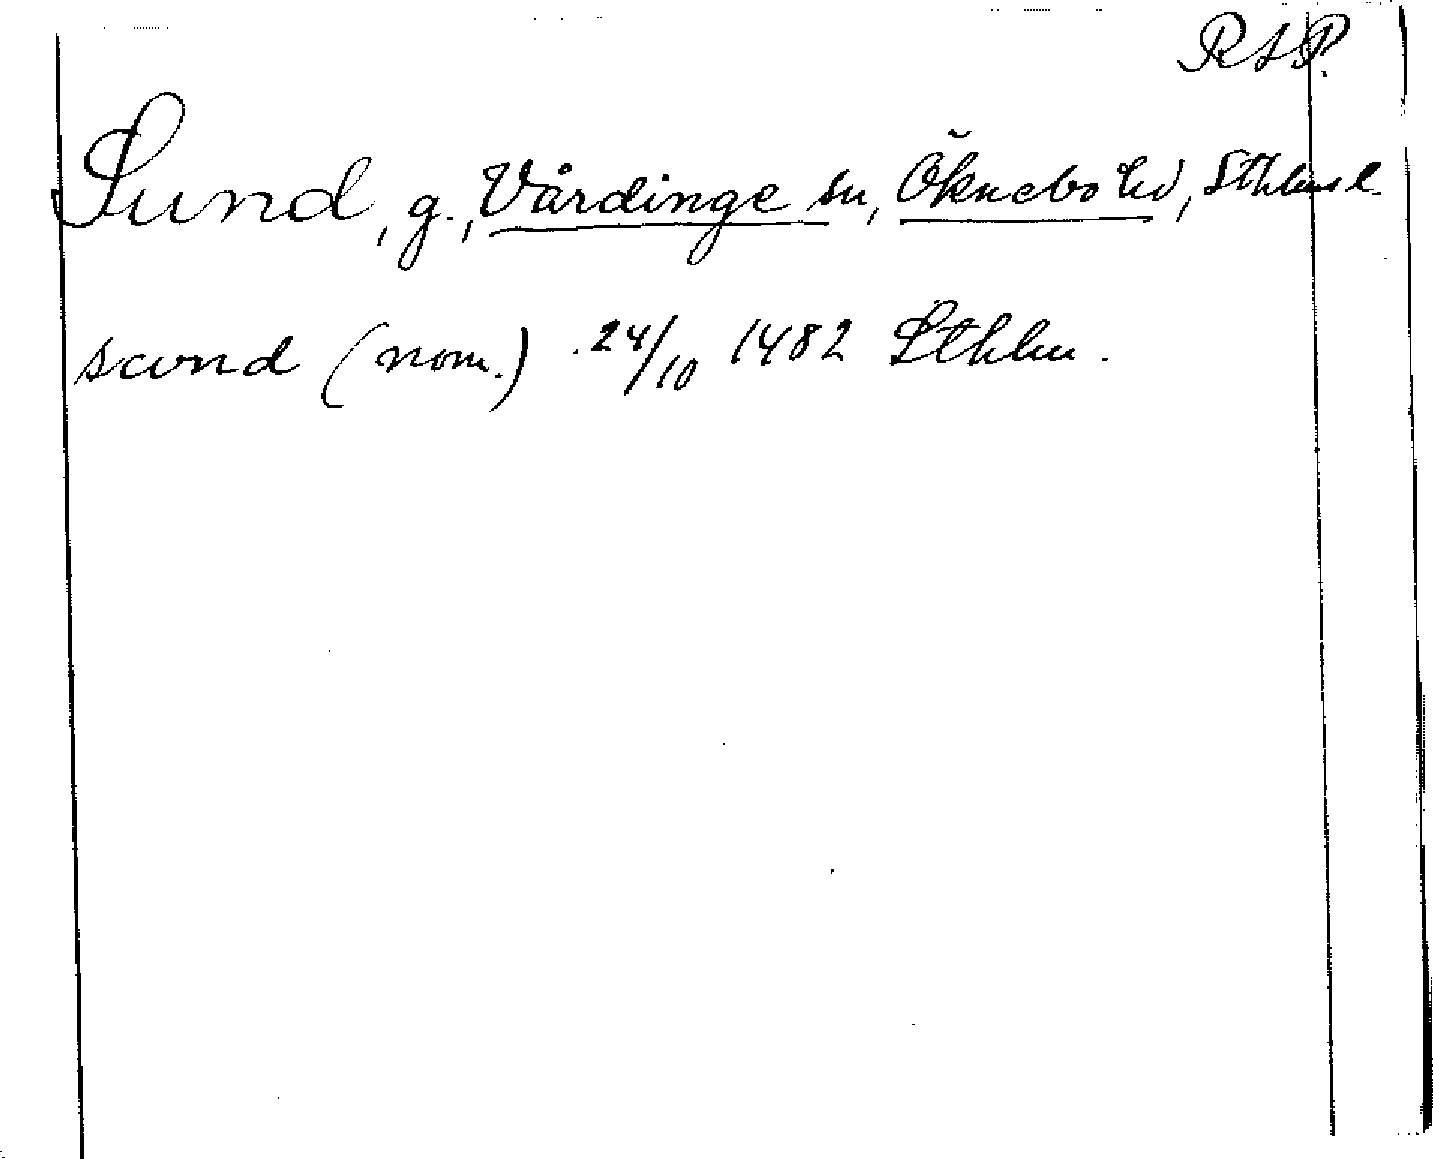 RAP.
Sund, g., Vårdinge sn, Öknebo hd, Sthlms l.
swnd (nom.) 24/10 1482 Sthlm.